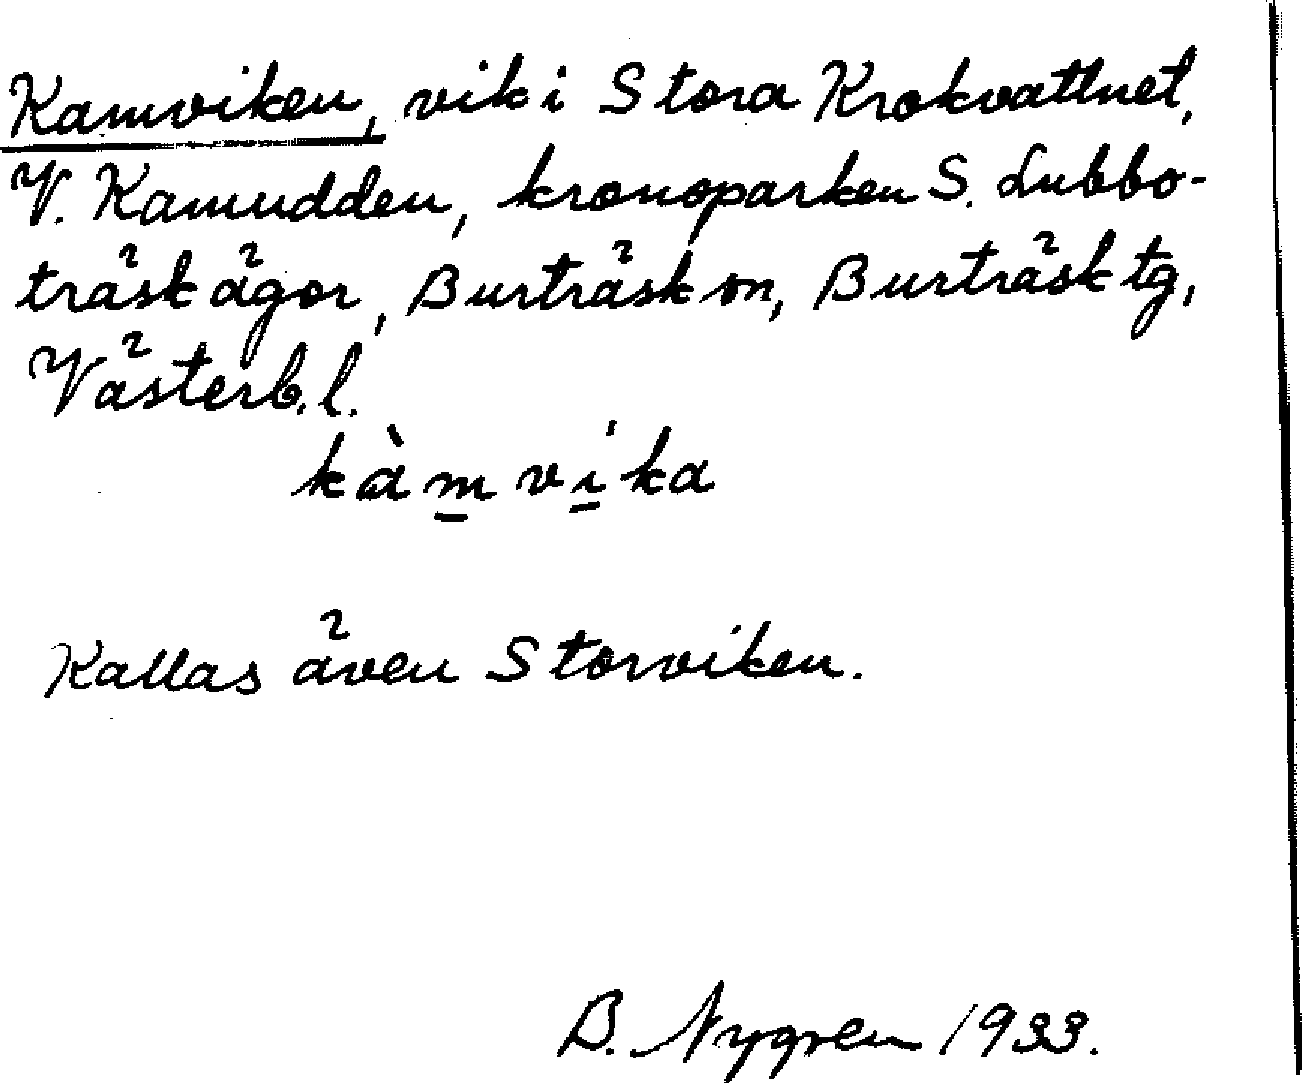 Kamviken, vik i Stora Krokvattnet,
V. Kamudden, kronoparken S. Lubbo-
träskägor, Burträsk sn, Burträsk tg,
Västerb. l.
kàm̲vi̲ka
Kallas även Storviken.
B. Nygren 1933.